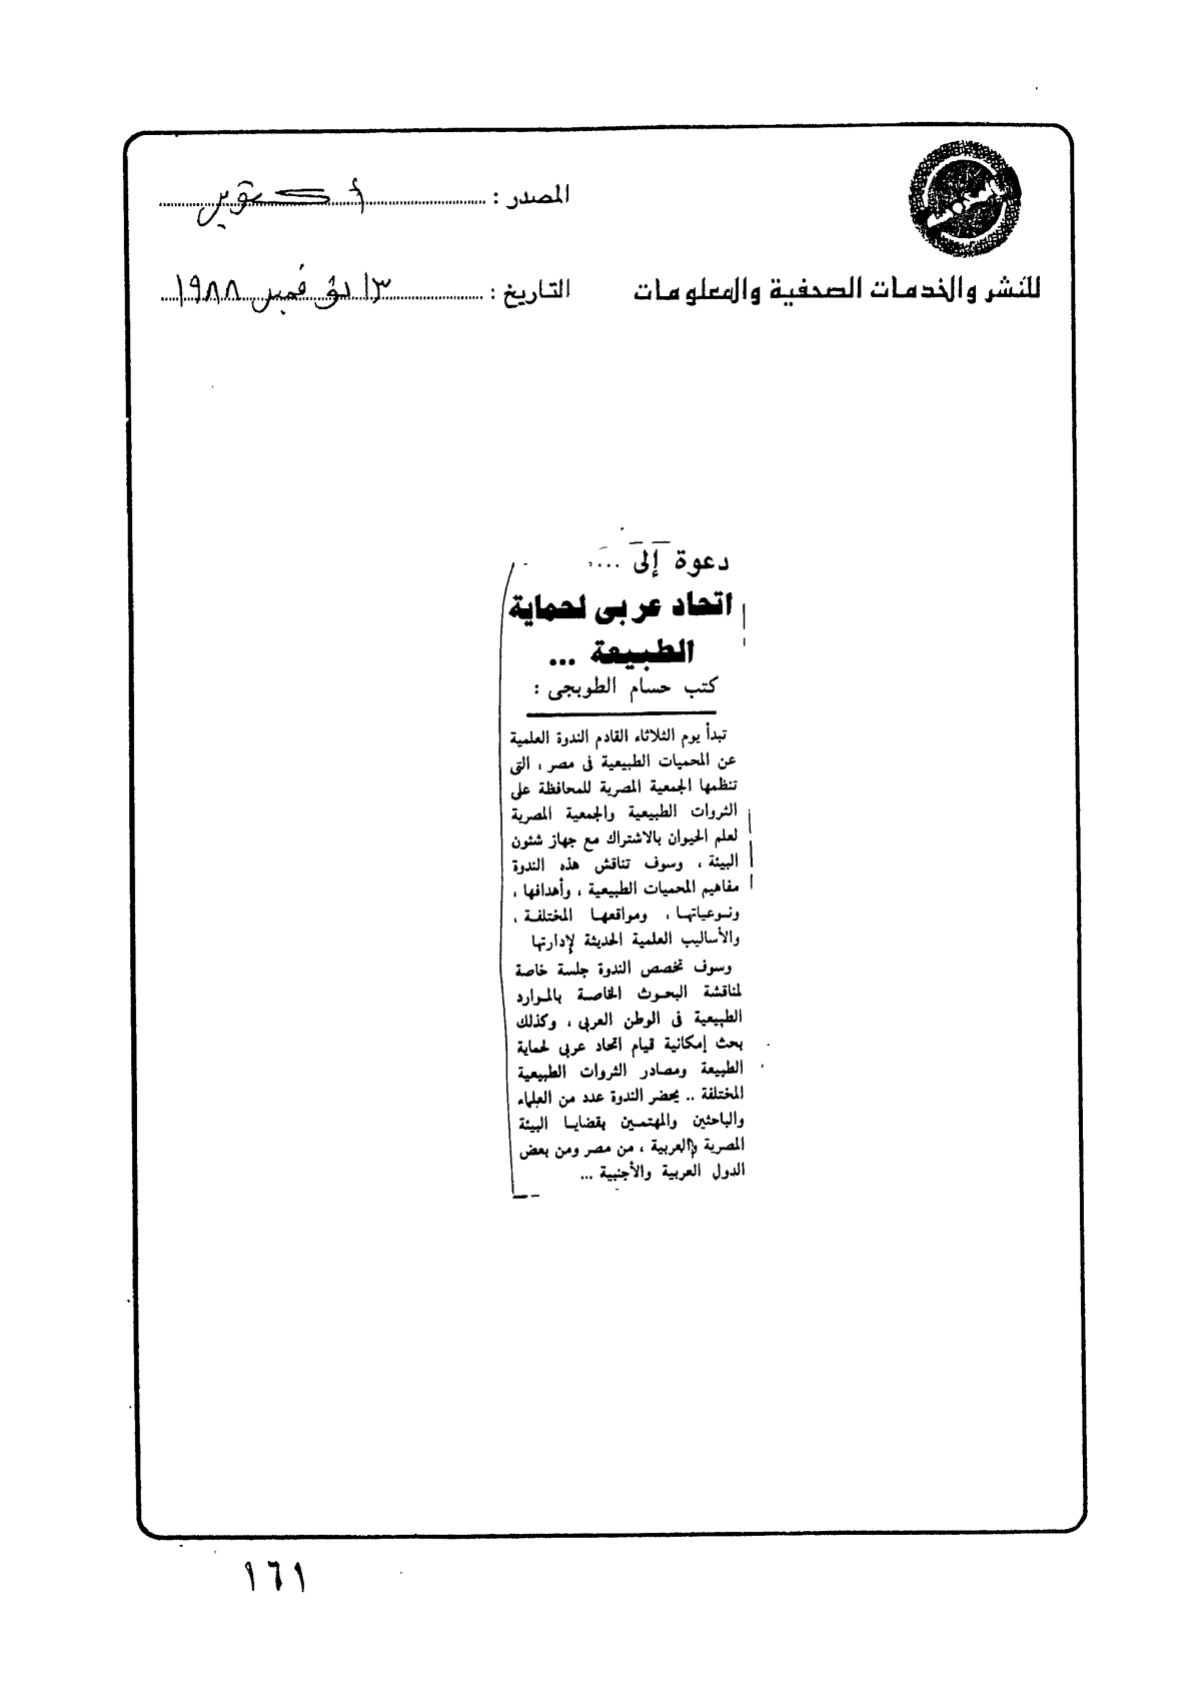 المصدر : أكتوبر
للنشر والخدمات الصحفية والمعلومات
التاريخ : ١٣ نوفمبر ١٩٨٨
دعوة إلى ...
اتحاد عربى لحماية
الطبيعة ...
كتب حسام الطوبجى :
تبدأ يوم الثلاثاء القادم الندوة العلمية
عن المحميات الطبيعية فى مصر ، التى
تنظمها الجمعية المصرية للمحافظة على
الثروات الطبيعية والجمعية المصرية
لعلم الحيوان بالاشتراك مع جهاز شئون
البيئة ، وسوف تناقش هذه الندوة
مفاهيم المحميات الطبيعية ، وأهدافها ،
ونوعياتها ، ومواقعها المختلفة ،
والأساليب العلمية الحديثة لإدارتها
وسوف تخصص الندوة جلسة خاصة
لمناقشة البحوث الخاصة بالموارد
الطبيعية فى الوطن العربى ، وكذلك
بحث إمكانية قيام اتحاد عربى لحماية
الطبيعة ومصادر الثروات الطبيعية
المختلفة .. يحضر الندوة عدد من العلماء
والباحثين والمهتمين بقضايا البيئة
المصرية والعربية ، من مصر ومن بعض
الدول العربية والأجنبية ...
١٦١